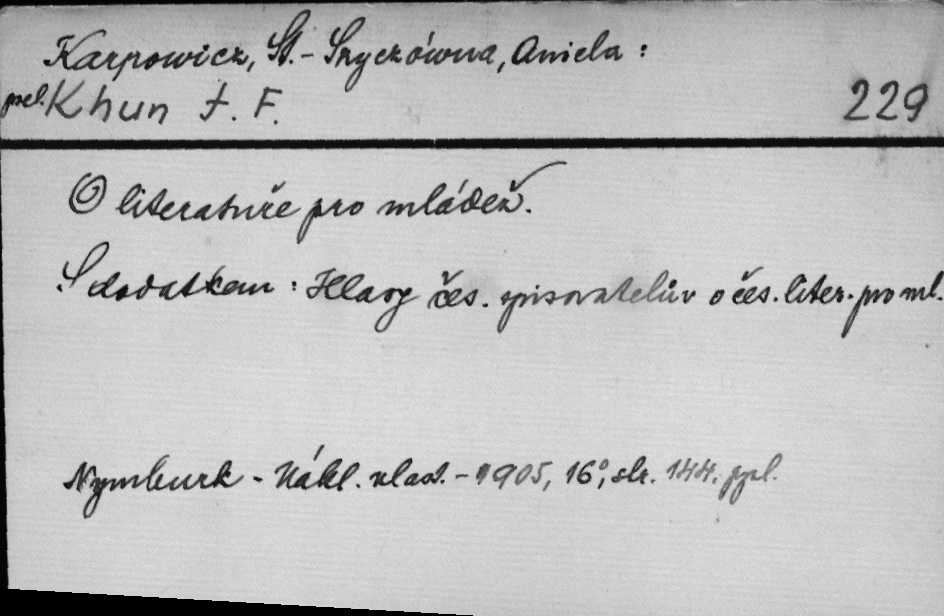 Karpowicz, St. - Szyczówna, Aniela :
přel. Khun F. F. 229
O literatuře pro mládež.
S dodatkem : Hlasy čes. spisovatelův o čes. liter. pro ml.
Nymburk - Nákl. vlast. - 1905, 16°, str. 144.